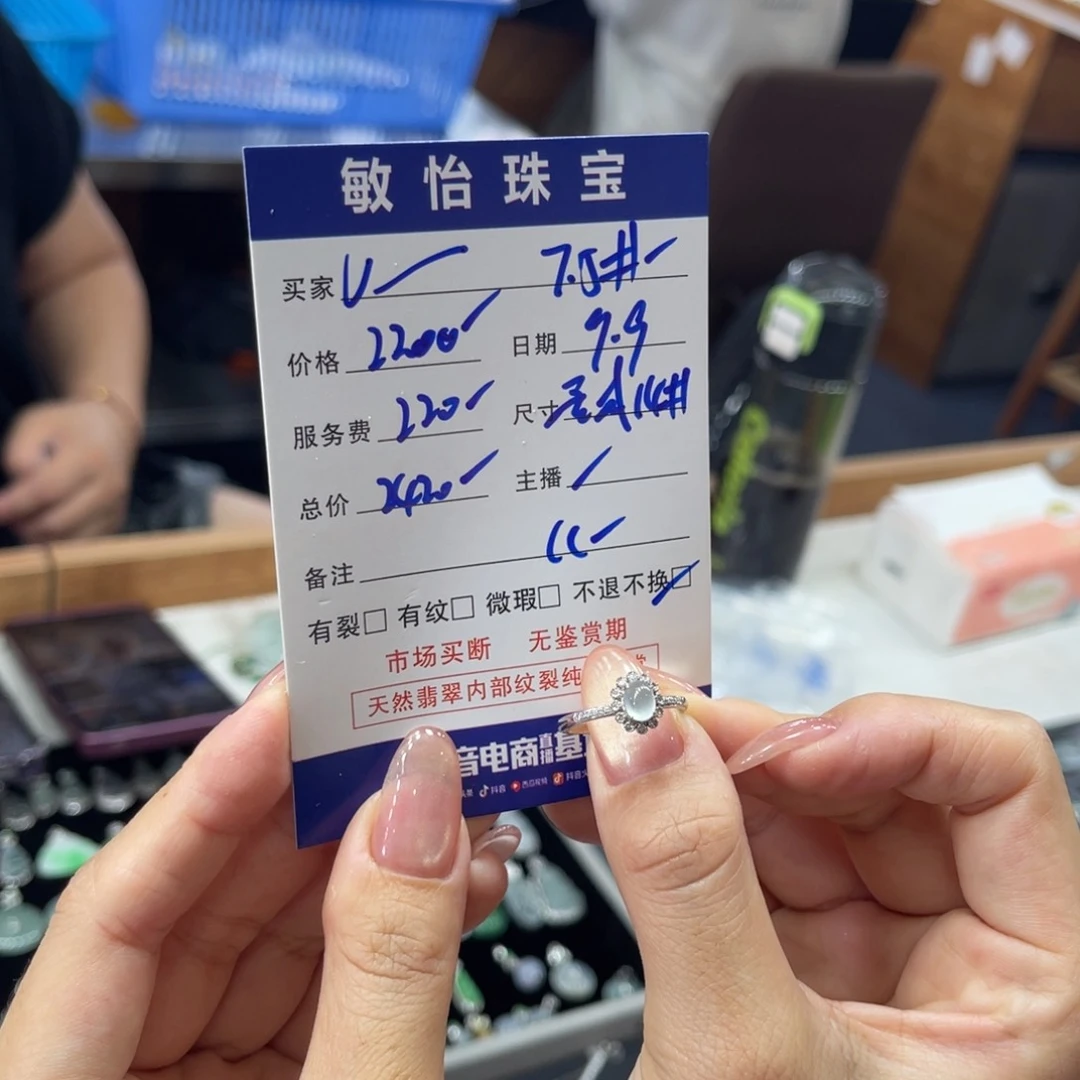 敏怡珠宝
买家 V 7.5#
价格 2200 日期 9.9
服务费 220 尺寸 14#
总价 2420 主播
备注
有裂□ 有纹□ 微瑕□ 不退不换□
市场买断 无鉴赏期
天然翡翠内部纹裂纯
音电商直播基
头条 抖音 西瓜视频 抖音火